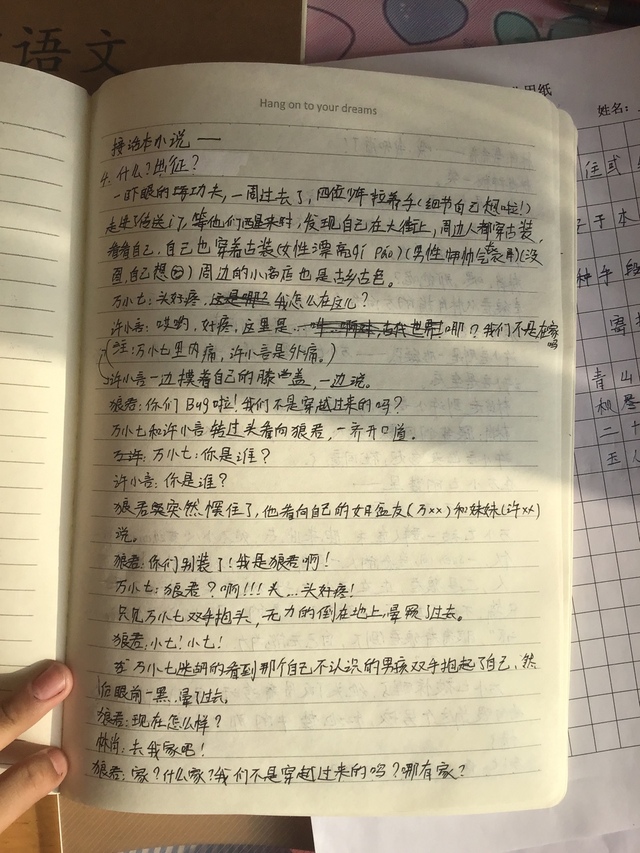 语文
用纸
姓名：
Hang on to your dreams
接话本小说 —
4. 什么？出征？
一眨眼的功夫，一周过去了，四位少年拉着手（细节自己想啦！）
走进传送门，等他们醒来时，发现自己在大街上，周边人都穿古装，
看看自己，自己也穿着古装（女性漂亮qí páo）（男性帅帅气
面，自己想）周边的小商店也是古乡古色。
万小七：头好疼，这是哪？我怎么在这儿？
许小言：哎哟，好疼，这里是 哪？我们不是在家吗
（注：万小七是内痛，许小言是外痛。）
许小言一边摸着自己的膝盖，一边说。
狼君：你们Bug啦！我们不是穿越过来的吗？
万小七和许小言转过头看向狼君，一齐开口道．
万小七：你是谁？
许小言：你是谁？
狼君突然愣住了，他看向自己的女朋友（万xx）和妹妹（许xx）
说。
狼君：你们别装了！我是狼君啊！
万小七：狼君？啊！！！头…头好疼！
只见万小七双手抱头，无力的倒在地上，晕了过去。
狼君：小七！小七！
万小七迷糊的看到那个自己不认识的男孩双手抱起了自己，然
后眼前一黑，晕了过去。
狼君：现在怎么样？
林肖：去我家吧！
狼君：家？什么家？我们不是穿越过来的吗？哪有家？